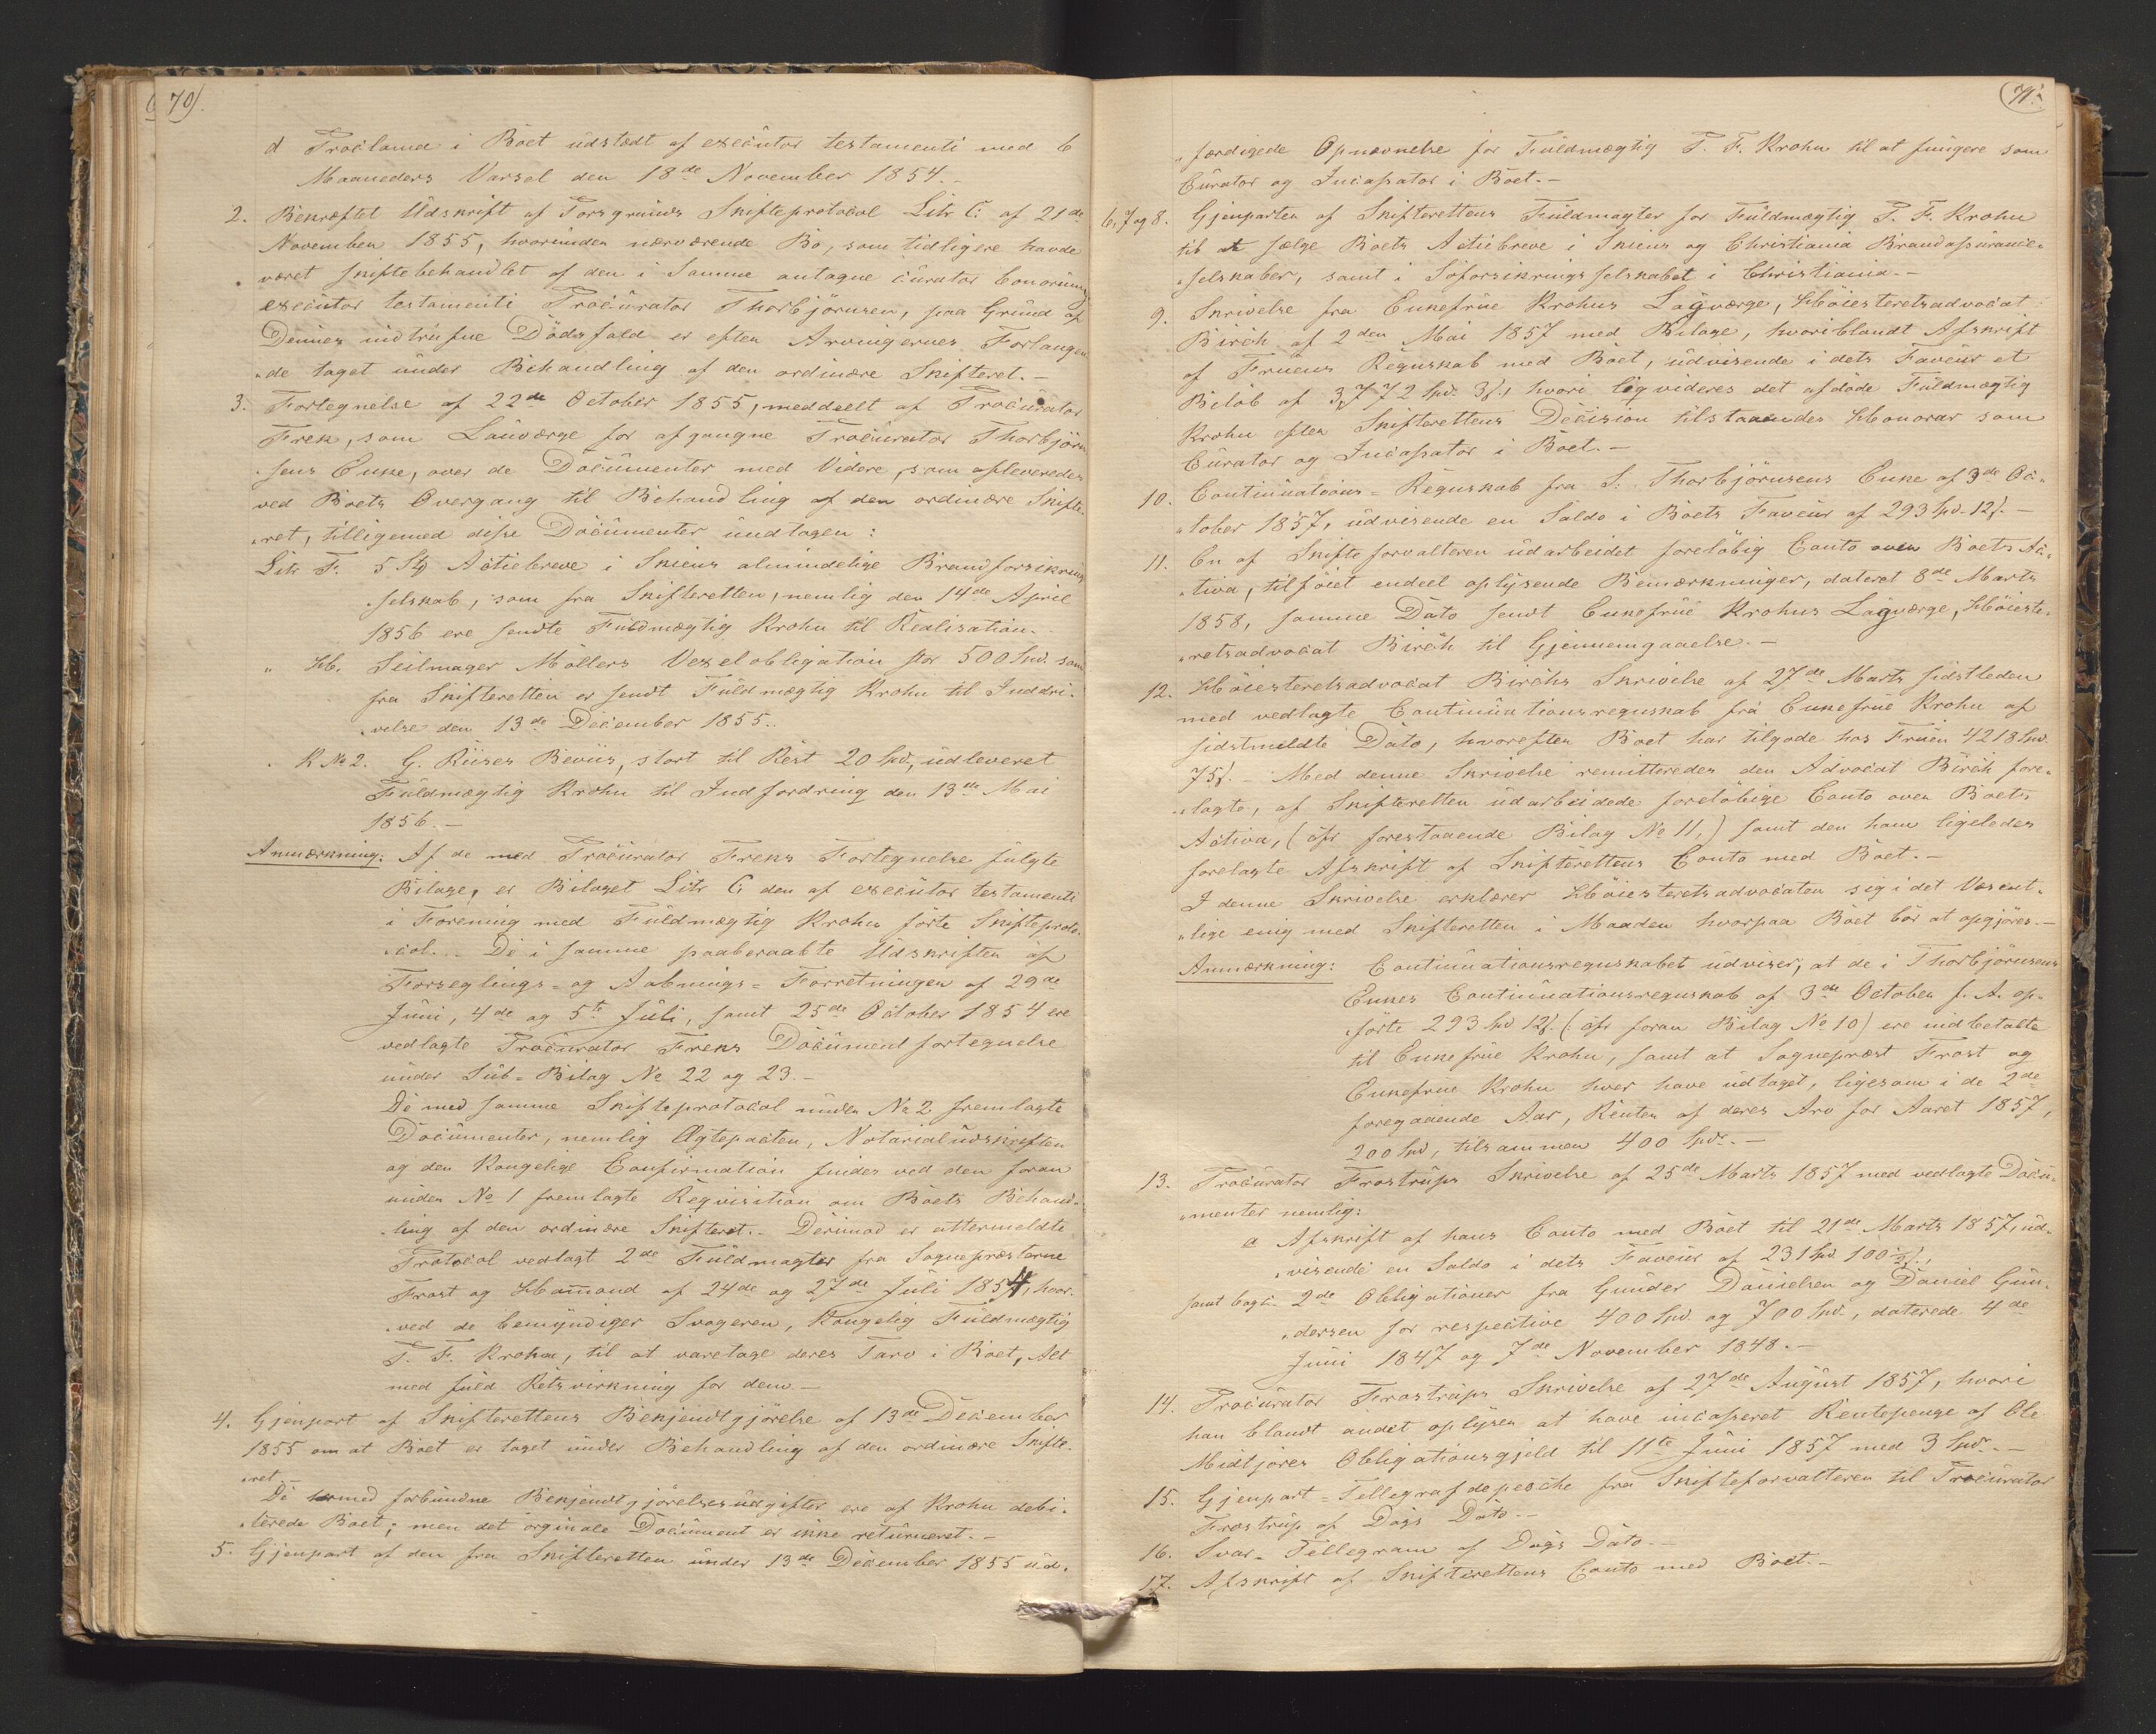 70).
d Proclama i Boet udstædt af executor testamenti med 6
Maaneders Varsel den 18de November 1854.-
2. Bekræftet Udskrift af Porsgrunds Skifteprotocol Litr C. af 21de
November 1855, hvorunder nærværende Bo, som tidligere havde
været skiftebehandlet af den i Samme antagne curator bonorum
executor testamenti Procurator Thorbjörnsen, paa Grund af
Dennes indtrufne Dödsfald er efter Arvingernes Forlangen-
de taget under Behandling af den ordinære Skifteret.-
3. Fortegnelse af 22de October 1855, meddeelt af Procurator
Frek, som Laugværge for afgangne Procurator Thorbjörn-
sens Enke, over de Documenter med Videre, som afleveredes
ved Boets Overgang til Behandling af den ordinære Skifte-
ret, tilligemed disse Documenter undtagen:
Litr F. 5 Stk Actiebreve i Skiens almindelige Brandforsikrings-
selskab, som fra Skifteretten, nemlig den 14de April
1856 ere sendte Fuldmægtig Krohn til Realisation.
" Hb. Seilmager Möllers Vexelobligation stor 500 Spd. som
fra Skifteretten er sendt Fuldmægtig Krohn til Inddri-
velse den 13de December 1855..
" K No 2. G. Riises Beviis, stort til Rest 20 Spd, udleveret
Fuldmægtig Krohn til Indfordring den 13de Mai
1856.-
Anmærkning: Af de med Procurator Freks Fortegnelse fulgte
Bilage, er Bilaget Litr C. den af executor testamenti
i Forening med Fuldmægtig Krohn förte Skifteproto-
col.- De i samme paaberaabte Udskrifter af
Forseglings- og Aabnings-Forretningen af 29de
Juni, 4de og 5te Juli, samt 25de October 1854 ere
vedlagte Procurator Freks Documentfortegnelse
under Sub-Bilag No 22 og 23.-
De med samme Skifteprotocol under No 2 fremlagte
Documenter, nemlig Ægtepacten, Notarialudskriften
og den Kongelige Confirmation findes ved den foran
under No 1 fremlagte Reqvisition om Boets Behand-
ling af den ordinære Skifteret.- Derimod er attermeldte
Protocol vedlagt 2de Fuldmagter fra Sognepræsterne
Frost og Hammond af 24de og 27de Juli 1854, hvor-
ved de bemyndiger Svogeren, Kongelig Fuldmægtig
P. F. Krohn, til at varetage deres Tarv i Boet, Alt
med fuld Retsvirkning for dem.-
4. Gjenpart af Skifterettens Bekjendtgjörelse af 13de December
1855 om at Boet er taget under Behandling af den ordinære Skifte-
ret.-
De hermed forbundne Bekjendtgjörelsesudgifter ere af Krohn debi-
terede Boet; men det orginale Document er ikke returneret.-
5. Gjenpart af den fra Skifteretten under 13de December 1855 ud-
71.
færdigede Opnævnelse for Fuldmægtig P. F. Krohn til at fungere som
Curator og Incassator i Boet.-
6, 7 og 8. Gjenparter af Skifterettens Fuldmagter for Fuldmægtig P. F. Krohn
til at sælge Boets Actiebreve i Skiens og Christiania Brandassurance-
selskaber, samt i Söforsikringsselskabet i Christiania.-
9. Skrivelse fra Enkefrue Krohns Lagværge, Höiesteretsadvocat
Birch af 2den Mai 1857 med Bilage, hvoriblandt Afskrift
af Fruens Regnskab med Boet, udvisende i dets Faveur et
Belöb af 3,772 Spd. 3ß, hvori liqvideres det afdöde Fuldmægtig
Krohn efter Skifterettens Decision tilstaaendes Honorar som
Curator og Incassator i Boet.-
10. Continuations-Regnskab fra S. Thorbjörnsens Enke af 3de Oc-
tober 1857, udvisende en Saldo i Boets Faveur af 293 Spd. 12ß.-
11. En af Skifteforvalteren udarbeidet foreløbig Conto over Boets Ac-
tiva, tilföiet endeel oplysende Bemærkninger, dateret 8de Marts
1858, samme Dato sendt Enkefrue Krohns Lagværge, Höieste-
retsadvocat Birch til Gjennemgaaelse.-
12. Höiesteretsadvocat Birchs Skrivelse af 27de Marts sidstleden
med vedlagte Continuationsregnskab fra Enkefrue Krohn af
sidstmeldte Dato, hvorefter Boet har tilgode hos Fruen 4218 Spd.
75ß.- Med denne Skrivelse remitteredes den Advocat Birch fore-
lagte, af Skifteretten udarbeidede foreløbige Conto over Boets
Activa, (cfr forestaaende Bilag No 11,) samt den ham ligeledes
forelagte Afskrift af Skifterettens Conto med Boet.-
I denne Skrivelse erklærer Höiesteretsadvocaten sig i det Væsent-
lige enig med Skifteretten i Maaden hvorpaa Boet bör at opgjöres.-
Anmærkning: Continuationsregnskabet udviser, at de i Thorbjörnsens
Enkes Continuationsregnskab af 3de October f. A. op-
förte 293 Spd 12ß. (: cfr foran Bilag No 10) ere indbetalte
til Enkefrue Krohn, samt at Sognepræst Frost og
Enkefrue Krohn hver have udtaget, ligesom i de 2de
foregaaende Aar, Renten af deres Arv for Aaret 1857,
200 Spd, tilsammen 400 Spd.-
13. Procurator Frostrups Skrivelse af 25de Marts 1857 med vedlagte Docu-
menter nemlig:
a Afskrift af hans Conto med Boet til 21de Marts 1857, ud-
visende en Saldo i dets Faveur af 231 Spd 100½ß,
samt bagi. 2de Obligationer fra Gunder Danielsen og Daniel Gun-
dersen for respective 400 Spd. og 700 Spd., daterede 4de
Juni 1847 og 7de November 1848.-
14. Procurator Frostrups Skrivelse af 27de August 1857, hvori
han blandt andet oplyser at have incasseret Rentepenge af Ole
Midtjores Obligationsgjeld til 11te Juni 1857 med 3 Spd.-
15. Gjenpart-Tellegrafdepesche fra Skifteforvalteren til Procurator
Frostrup af Dags Dato.-
16. Svar-Tellegram af Dags Dato.-
17. Afskrift af Skifterettens Conto med Boet.-